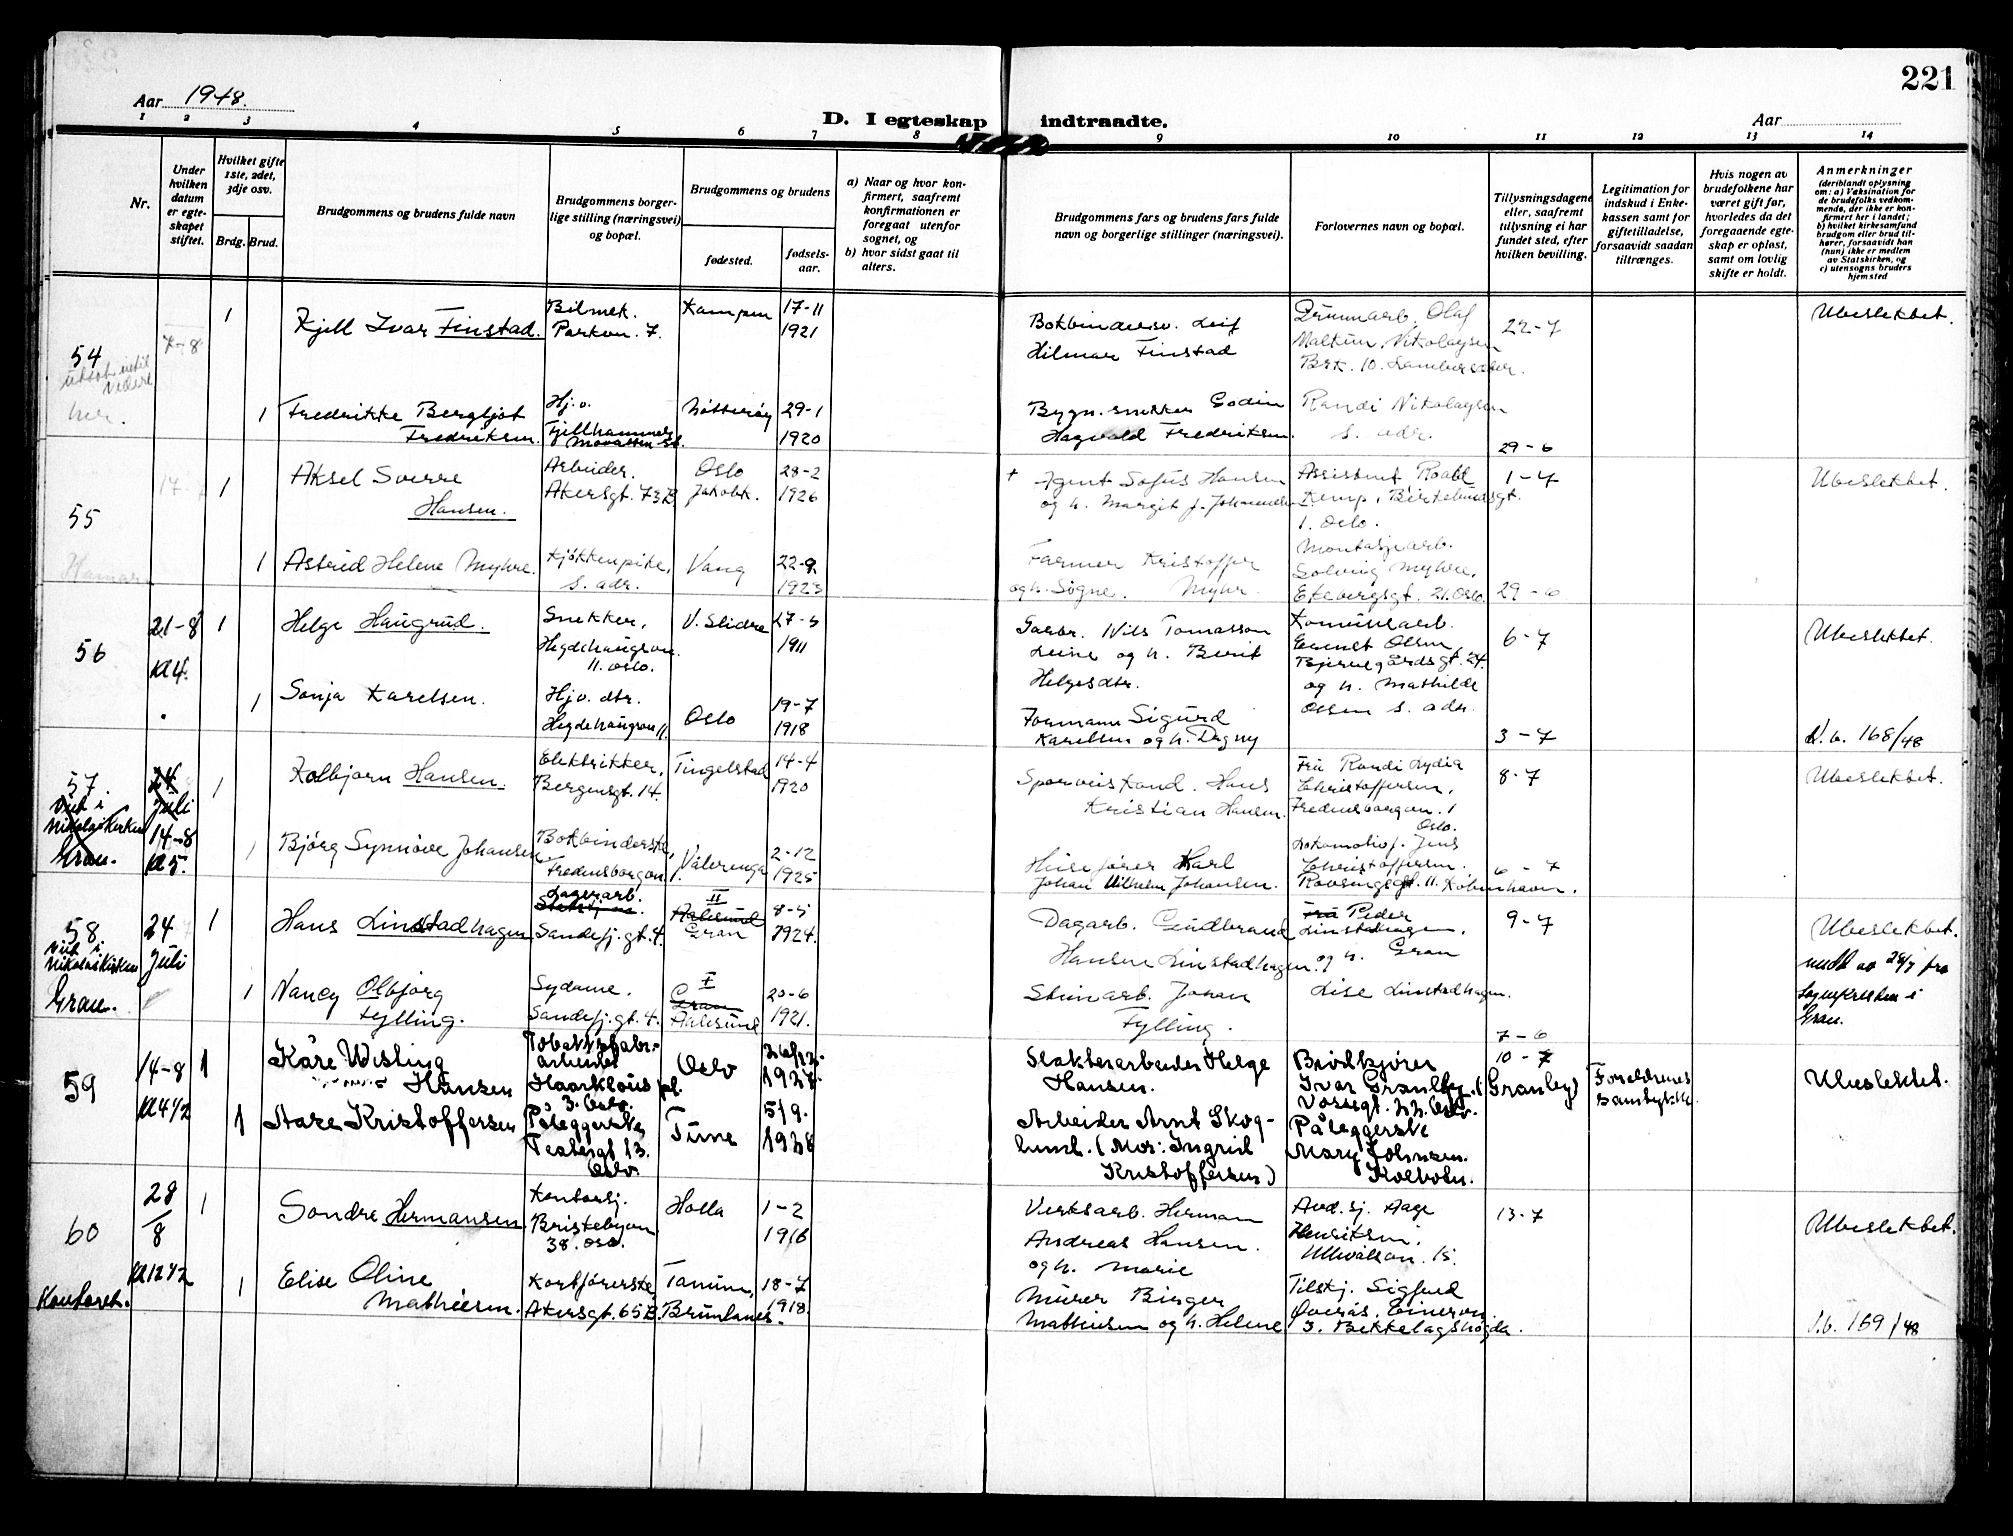 221
Aar 1948.
D. I egteskap indtraadte.
Aar
1 2 3 4 5 6 7 8 9 10 11 12 13 14
Nr.
Under hvilken datum er egteskapet stiftet.
Hvilket gifte 1ste, 2det, 3dje osv.
Brdg. Brud.
Brudgommens og brudens fulde navn
Brudgommens borgerlige stilling (næringsvei) og bopæl.
Brudgommens og brudens
fødested.
fødselsaar.
a) Naar og hvor konfirmert, saafremt konfirmationen er foregaat utenfor sognet, og
b) hvor sidst gaat til alters.
Brudgommens fars og brudens fars fulde navn og borgerlige stillinger (næringsvei).
Forlovernes navn og bopæl.
Tillysningsdagene eller, saafremt tillysning ei har fundet sted, efter hvilken bevilling.
Legitimation for indskud i Enkekassen samt for giftetilladelse, forsaavidt saadan tiltrænges.
Hvis nogen av brudefolkene har været gift før, hvorledes da det foregaaende egteskap er opløst, samt om lovlig skifte er holdt.
Anmerkninger
(deriblandt oplysning om: a) Vaksination for de brudefolks vedkommende, der ikke er konfirmert her i landet; b) hvilket kirkesamfund brudgom eller brud tilhører, forsaavidt han (hun) ikke er medlem av Statskirken, og c) utensogns bruders hjemsted
54
7-8
1
Kjell Ivar Finstad.
Bilmek.
Parkvn. 7.
Kampen
17-11
1921
Bokbindersv. Leif
Hilmar Finstad
Olaf
Nikolaysen
22-7
Ubeslektet.
1
Fredrikke Bergljot
Fredriksen.
Hj.v.
Fjellhammer
Nøtterøy
29-1
1920
Bygn.snekker Godin
Hagvald Fredriksen.
Randi Nikolaysen
s. adr.
29-6
55
1
Aksel Sverre
Hansen.
Arbeider.
Akersgt. 73B
Oslo
Jakobk.
28-2
1926
+ Agent Sofus Hansen
og h. Margit f. Johansen
Assistent Roald
Kemp,
1. Oslo.
1-7
Ubeslektet.
Hamar
1
Astrid Helene Myhre.
Kjøkkenpike,
s. adr.
Vang
22-9
1923
Farmer Kristoffer
og h. Signe. Myhr.
Montasjearb.
Solveig Myhre,
Ekebergsgt. 21. Oslo.
29-6
56
21-8
kl 4.
1
Helge Haugrud.
Snekker,
Hegdehaugsvn.
11. Oslo.
V. Slidre
27-5
1911
Garbr. Nils Tomasson
Leine og h. Berit
Helgesdtr.
Kommunearb.
Olsen
Bjerregårdsgt. 24.
og h. Mathilde
Olsen s. adr.
6-7
Ubeslektet.
1
Sonja Karelsen.
Hjv. dtr.
Hegdehaugsvn 11.
Oslo
19-7
1918
Formann Sigurd
Karelsen og h. Dagny
3-7
V.b. 168/48
57
Viet i
Nikolaikirken
Gran.
24
Juli
14-8
kl 5.
1
Kolbjørn Hansen.
Elektriker,
Bergensgt. 14.
Tingelstad
14-4
1920
Sporveiskond. Hans
Kristian Hansen.
Fru Randi Lydia
Christoffersen,
Fredensborgvn. 1
Oslo.
8-7
Ubeslektet.
1
Bjørg Synnøve Johansen
Bokbinderske,
Fredensborgvn 1.
Vålerenga
2-12
1925
Husefører Karl
Johan Vilhelm Johansen.
Lokomotivf. Jens
Christoffersen.
Rovsingsgt. 11. København.
6-7
58
Viet i
Nikolaikirken
Gran.
24
Juli
1
Hans Linstadhagen
Lagerarb.
Sandefj.gt. 4.
II
Aalesund
Gran
8-5
1924.
Dagarb. Gudbrand
Hansen Linstadhagen.
Fru Peder
Linstadhagen,
og h. Gran
Lise Linstadhagen.
9-7
Ubeslektet.
meldt av 28/7 fra
Sognepresten i
Gran.
1
Nancy Olbjørg
Fylling.
Sydame.
Sandefj.gt. 4.
I
Gran
Aalesund
20-6
1921.
Steinarb. Johan
Fylling.
7-6
59
14-8
kl 4 1/2
1
Kåre Wisling
Hansen
Tobakksfabr.-
arbeider
Haarklous pl.
3. Oslo.
Oslo
26/12-
1927.
Slakterarbeider Helge
Hansen.
Brødkjører
Ivar Granlby. (Granby)
Vossegt. 22. Oslo.
10-7
Foreldrenes
samtykke
Ubeslektet.
1
Aase Kristoffersen
Påleggerske
Testergt 13.
Oslo.
Time
5/9.
1928
Arbeider Arnt Skog-
lund. (Mor: Ingrid
Kristoffersen)
Påleggerske
Mary Johnsen.
Kolbotn.
60
Kontoret.
28
/
8
kl 12 1/2
1
Sondre Hermansen.
Kontorsj.
38. Oslo.
Holla
1-2
1916
Verksarb. Herman
Andreas Hansen.
og h. Marie
Avd.sj. Aage
Henriksen,
Ullevålsvn. 15.
13-7
Ubeslektet.
1
Elise Oline
Mathiesen.
Kortførerske,
Akersgt. 65B.
Tanum,
Brunlanes.
18-7
1918.
Murer Birger
Mathiesen og h. Helene
Tilskj. Sigfred
Øverås, Einervn.
3. Bekkelagshøgda.
V.b. 169/48